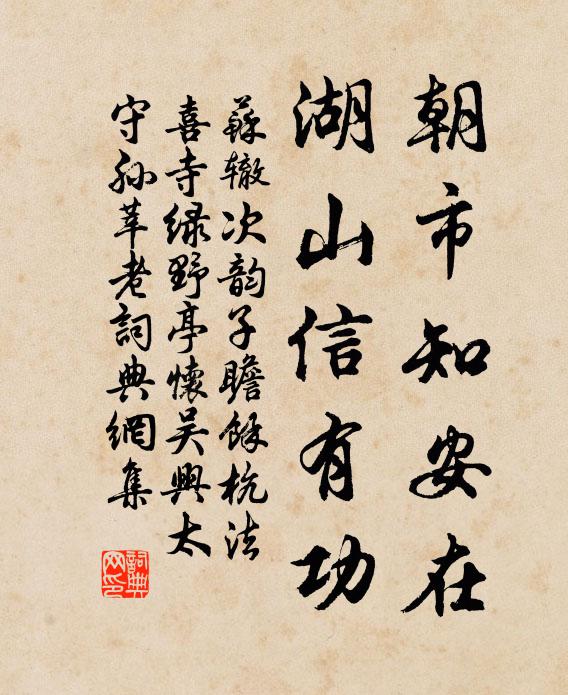 朝市知安在
湖山信有功
蘇辙次韵子瞻餘杭法
喜寺绿野亭懷吴興太
守孙莘老詞典網集
詞典网印